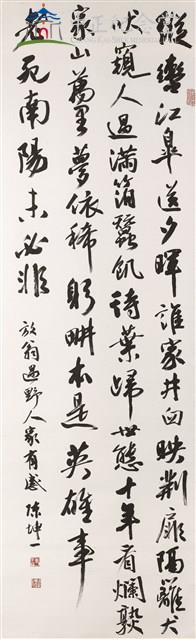 縱轡江皋送夕暉誰家井臼映荊扉隔籬犬
吠窺人過滿箔蠶飢待葉歸世態十年看爛熟
家山萬里夢依稀躬畊本是英雄事
老死南陽未必非
放翁過野人家有感 陳坤一